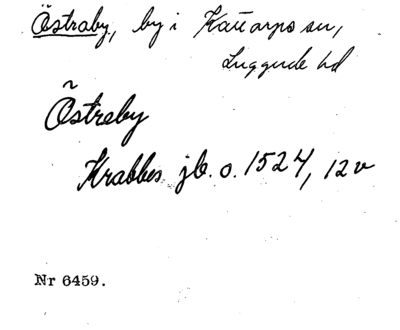 Östraby, by i Kattarps sn,
Luggude hd
Östraby
Krabbes jb. o. 1524, 12 v
Nr 6459.